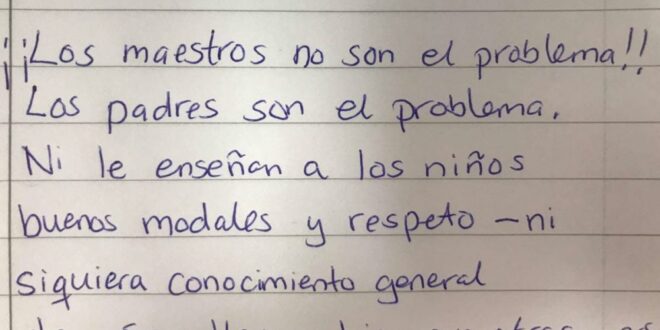 ¡¡Los maestros no son el problema!!
Los padres son el problema.
Ni le enseñan a los niños
buenos modales y respeto – ni
siquiera conocimiento general